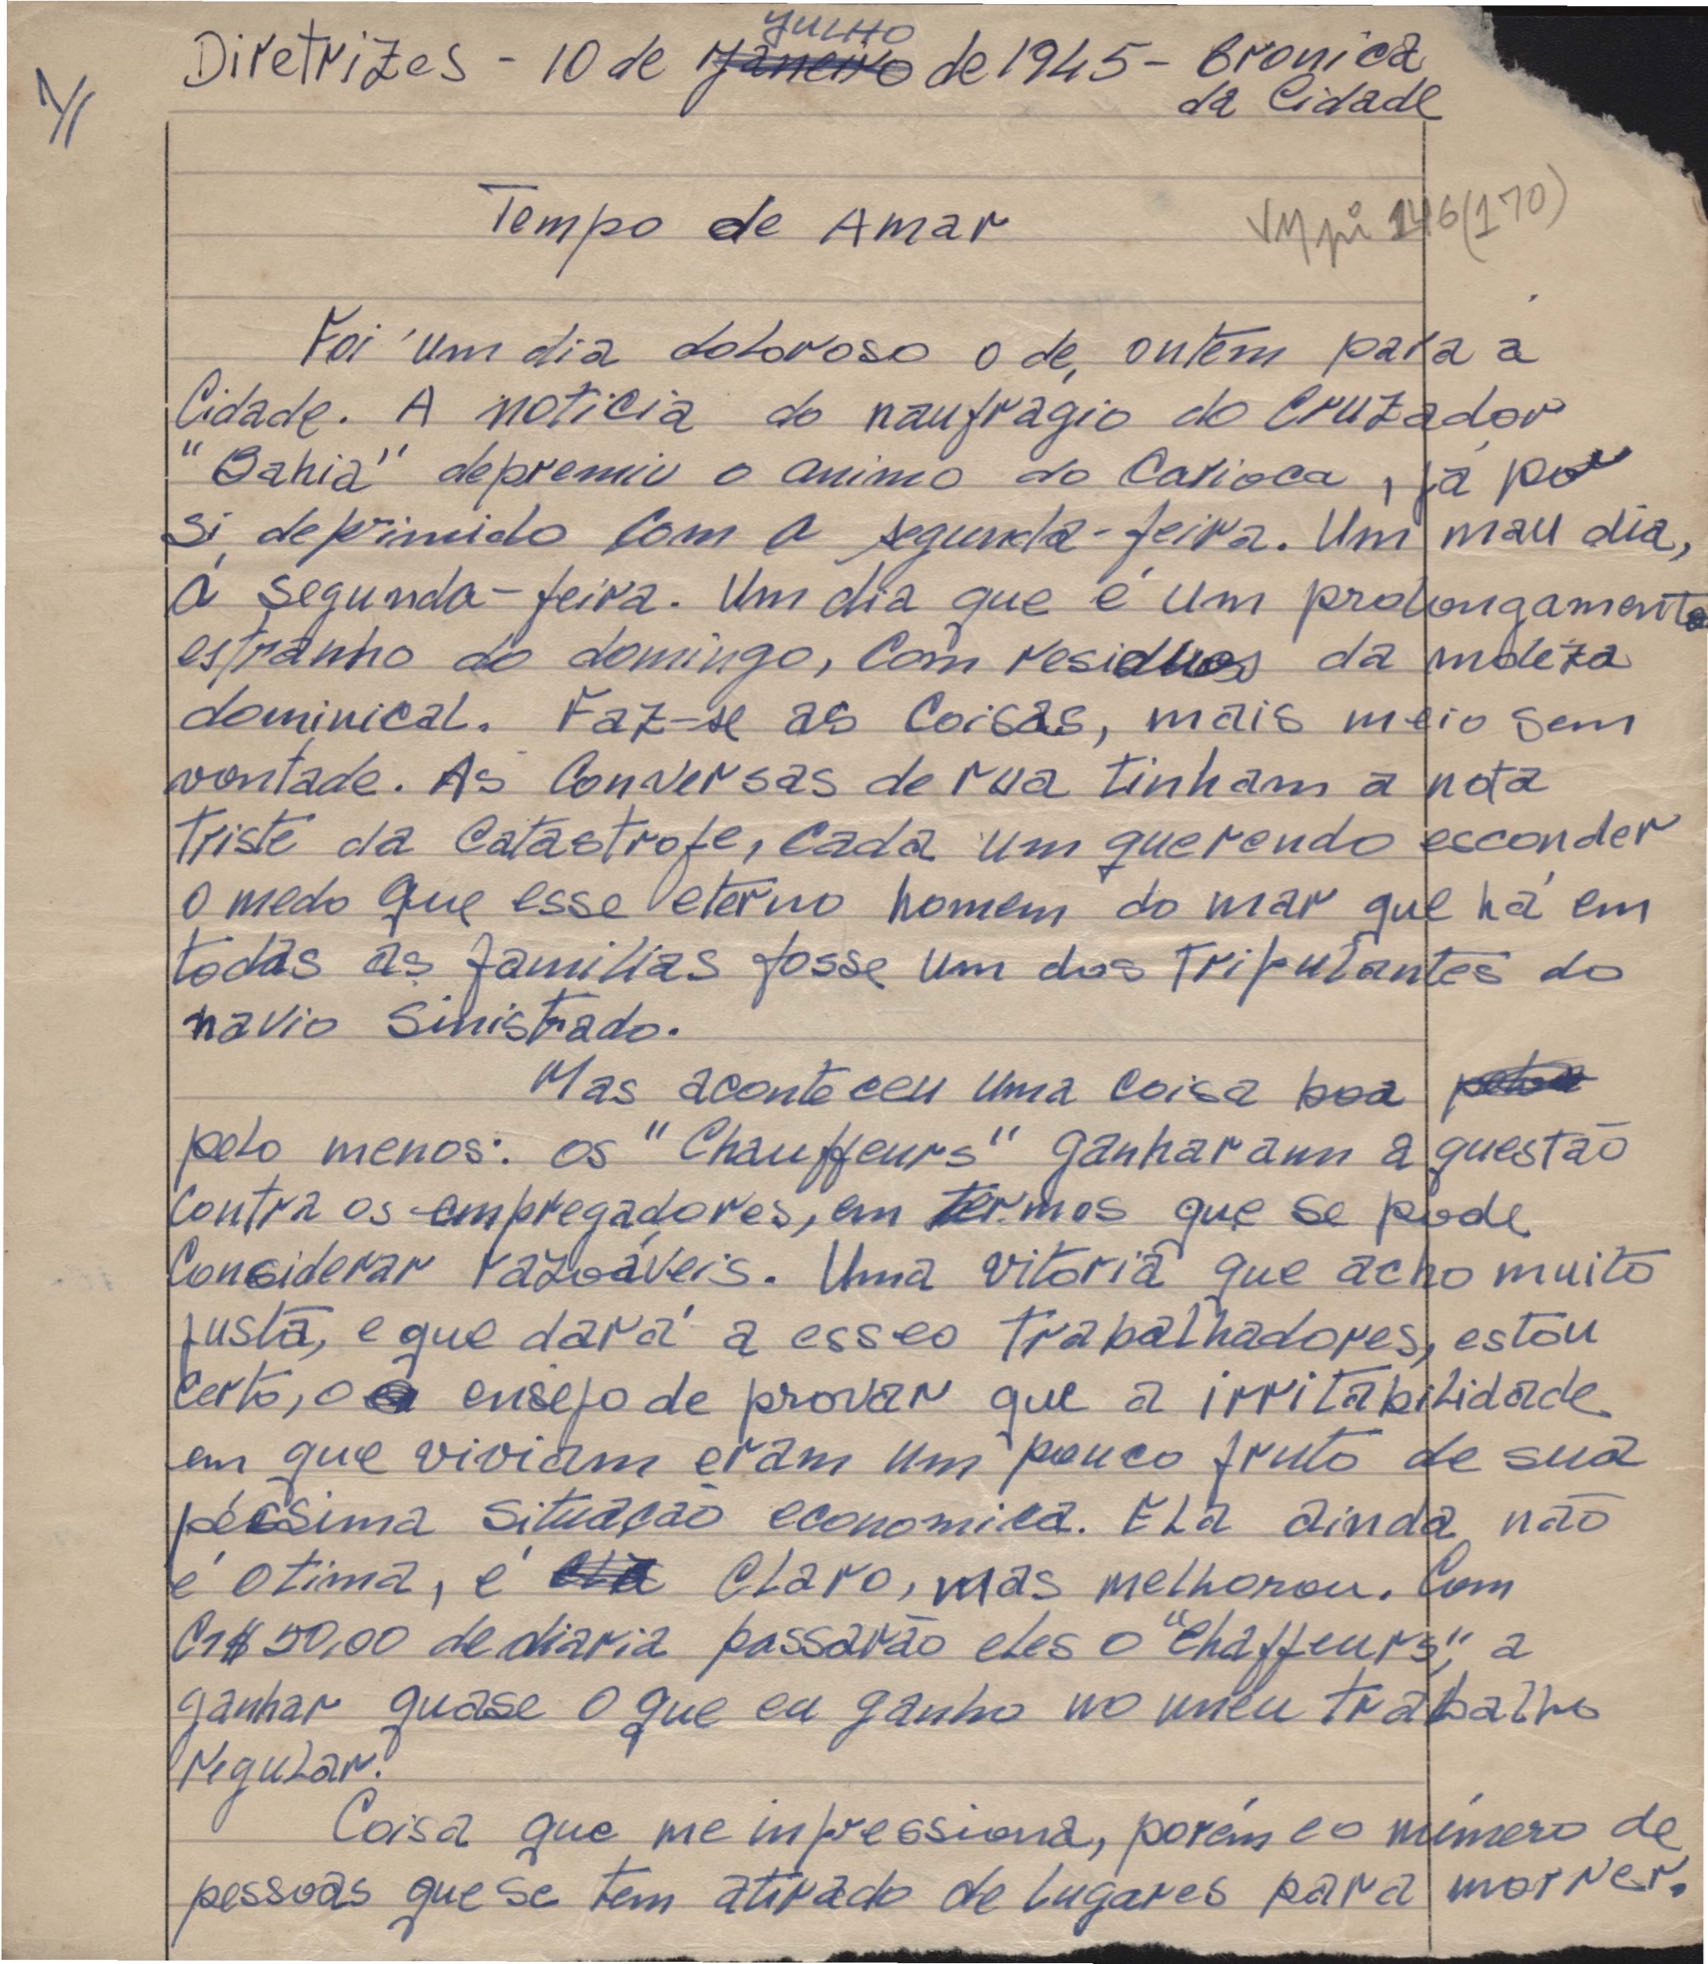 JULHO
Diretrizes - 10 de Janeiro de 1945 - Cronica
da Cidade
Tempo de Amar
146(170)
Foi um dia doloroso o de, ontem para a
Cidade. A noticia do naufragio do Cruzador
"Bahia" depremiu o animo do Carioca, já por
si deprimido com a segunda-feira. Um mau dia,
a segunda-feira. Um dia que é um prolongamento
estranho do domingo, com residuos da moleza
dominical. Faz-se as coisas, mais meio sem
vontade. As conversas de rua tinham a nota
triste da catastrofe, cada um querendo esconder
o medo que esse eterno homem do mar que há em
todas as familias fosse um dos tripulantes do
navio sinistrado.
Mas aconteceu uma coisa boa
pelo menos: os "Chauffeurs" ganharam a questão
contra os empregadores, em termos que se pode
considerar razoáveis. Uma vitoria que acho muito
justa, e que dará a esses trabalhadores, estou
certo, o ensejo de provar que a irritabilidade
em que viviam eram um pouco fruto de sua
péssima situação economica. Ela ainda não
é otima, é claro, mas melhorou. Com
Cr$ 50,00 de diaria passarão eles o "Chaffeurs", a
ganhar quase o que eu ganho no meu trabalho
regular.
Coisa que me impressiona, porém e o número de
pessoas que se tem atirado de lugares para morrer.